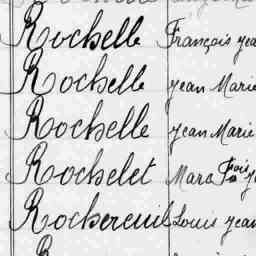 Rochelle François Jea
Rochelle Jean Marie
Rochelle Jean Marie
Rochelet Marc Fois J
Rochereuil Louis Jean